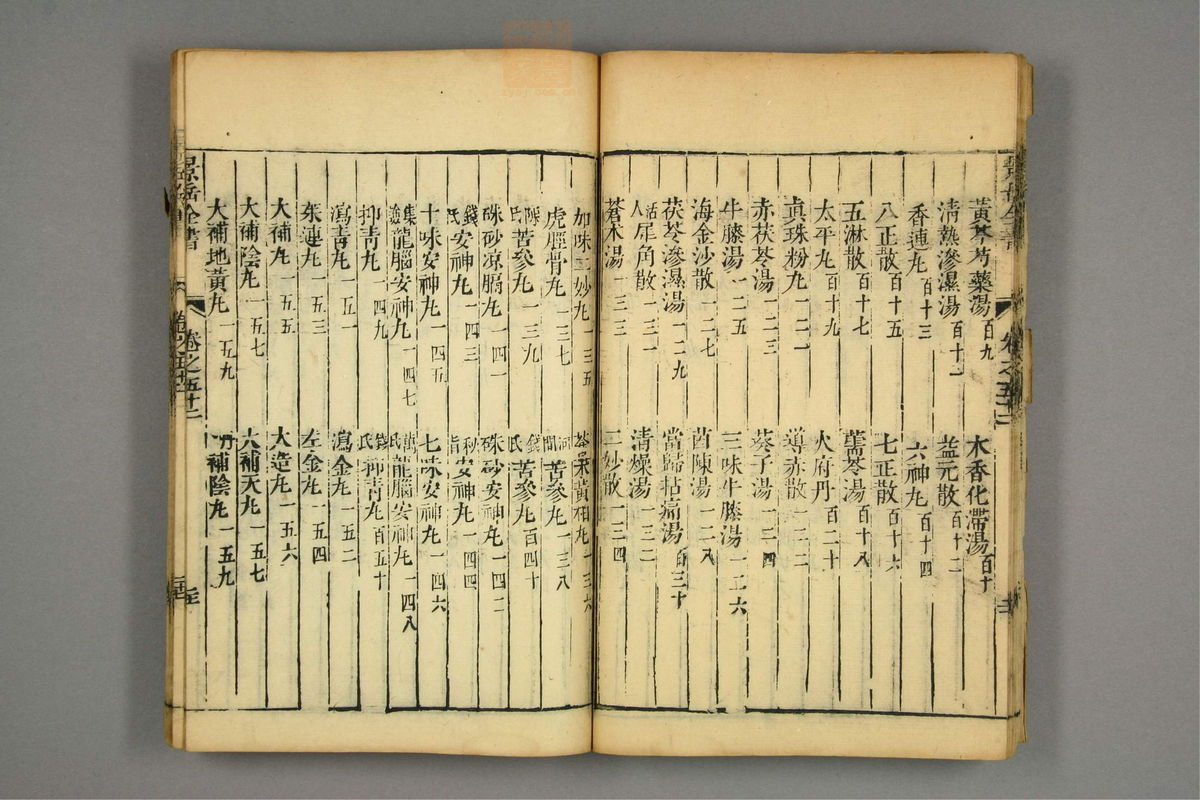 黃芩芍藥湯 百九
木香化滯湯 百十
清熱滲濕湯 百十一
益元散 百十二
香連丸 百十三
六神丸 百十四
八正散 百十五
七正散 百十六
五淋散 百十七
藿苓湯 百十八
太平丸 百十九
火府丹 百二十
眞珠粉丸 一二一
導赤散 一二二
赤茯苓湯 一二三
葵子湯 一二四
牛膝湯 一二五
三味牛膝湯 一二六
海金沙散 一二七
茵陳湯 一二八
茯苓滲濕湯 一二九
當歸拈痛湯 百三十
活人犀角散 一三一
清燥湯 一三二
蒼朮湯 一三三
二妙散 一三四
加味二妙丸 一三五
蒼朮黃栢丸 一三六
虎脛骨丸 一三七
河間苦參丸 一三八
陳氏苦參丸 一三九
錢氏苦參丸 百四十
硃砂凉膈丸 一四一
硃砂安神丸 一四二
錢氏安神丸 一四三
秘旨安神丸 一四四
十味安神丸 一四五
七味安神丸 一四六
集驗龍腦安神丸 一四七
龍腦安神丸 一四八
抑青丸 一四九
錢氏抑青丸 百五十
瀉青丸 一五一
瀉金丸 一五二
茱連丸 一五三
左金丸 一五四
大補丸 一五五
大造丸 一五六
大補陰丸 一五七
大補天丸 一五七
大補地黃丸 一五九
補陰丸 一五九
景岳全書
卷之五十二